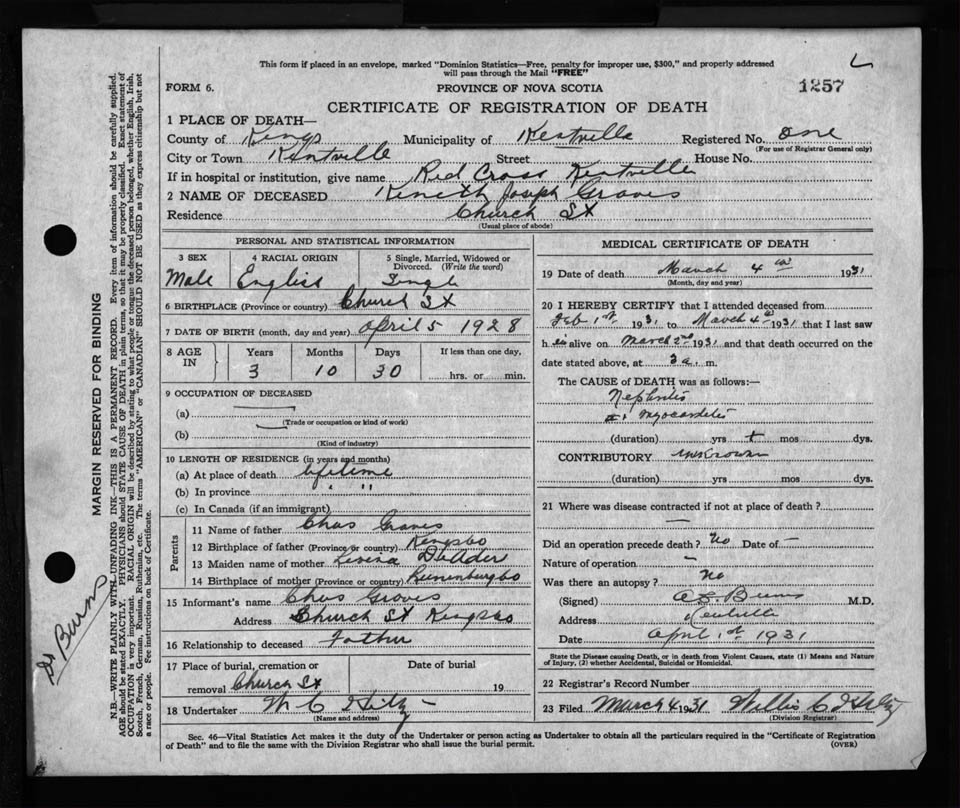 This form if placed in an envelope, marked "Dominion Statistics—Free, penalty for improper use, $300," and properly addressed
will pass through the Mail "FREE"
FORM 6.
PROVINCE OF NOVA SCOTIA
1257
CERTIFICATE OF REGISTRATION OF DEATH
1 PLACE OF DEATH—
County of Kings Municipality of Kentville Registered No. One
(For use of Registrar General only)
City or Town Kentville Street House No.
If in hospital or institution, give name Red Cross Kentville
2 NAME OF DECEASED Kineth Joseph Graves
Residence Church St
(Usual place of abode)
PERSONAL AND STATISTICAL INFORMATION
3 SEX 4 RACIAL ORIGIN 5 Single, Married, Widowed or
Divorced. (Write the word)
Male English Single
6 BIRTHPLACE (Province or country) Church St
7 DATE OF BIRTH (month, day and year) April 5 1928
8 AGE IN Years Months Days If less than one day,
3 10 30 hrs. or min.
9 OCCUPATION OF DECEASED
(a)
(Trade or occupation or kind of work)
(b)
(Kind of industry)
10 LENGTH OF RESIDENCE (in years and months)
(a) At place of death lifetime
(b) In province " "
(c) In Canada (if an immigrant)
Parents
11 Name of father Chas Graves
12 Birthplace of father (Province or country) Kings Co
13 Maiden name of mother
14 Birthplace of mother (Province or country) Lunenburg Co
15 Informant's name Chas Graves
Address Church St Kings Co
16 Relationship to deceased Father
17 Place of burial, cremation or Date of burial
removal Church St 19
18 Undertaker W C Hiltz
(Name and address)
MEDICAL CERTIFICATE OF DEATH
19 Date of death March 4 1931
(Month, day and year)
20 I HEREBY CERTIFY that I attended deceased from
Feb 1st, 1931 to March 4th 1931 that I last saw
h alive on March 2nd 1931 and that death occurred on the
date stated above, at 3 a. m.
The CAUSE of DEATH was as follows:—
Nephritis
Myocarditis
(duration) yrs mos dys.
CONTRIBUTORY unknown
(duration) yrs mos dys.
21 Where was disease contracted if not at place of death?
—
Did an operation precede death? No Date of —
Nature of operation —
Was there an autopsy? No
(Signed) Burns M.D.
Address Kentville
Date April 1st 1931
State the Disease causing Death, or in death from Violent Causes, state (1) Means and Nature
of Injury, (2) whether Accidental, Suicidal or Homicidal.
22 Registrar's Record Number
23 Filed March 4 1931 Willis C Hiltz
(Division Registrar)
Sec. 46—Vital Statistics Act makes it the duty of the Undertaker or person acting as Undertaker to obtain all the particulars required in the "Certificate of Registration
of Death" and to file the same with the Division Registrar who shall issue the burial permit.
(OVER)
MARGIN RESERVED FOR BINDING
N.B.—WRITE PLAINLY WITH UNFADING INK—THIS IS A PERMANENT RECORD. Every item of information should be carefully supplied.
AGE should be stated EXACTLY. PHYSICIANS should STATE CAUSE OF DEATH in plain terms, so that it may be properly classified. Exact statement of
OCCUPATION is very important. RACIAL ORIGIN will be described by stating to what people or tongue the deceased person belonged, whether English, Irish,
Scotch, French, German, Russian, Ruthenian, etc. The terms "AMERICAN" or "CANADIAN" SHOULD NOT BE USED as they express citizenship but not
a race or people. Fee instructions on back of Certificate.
Dr Burns